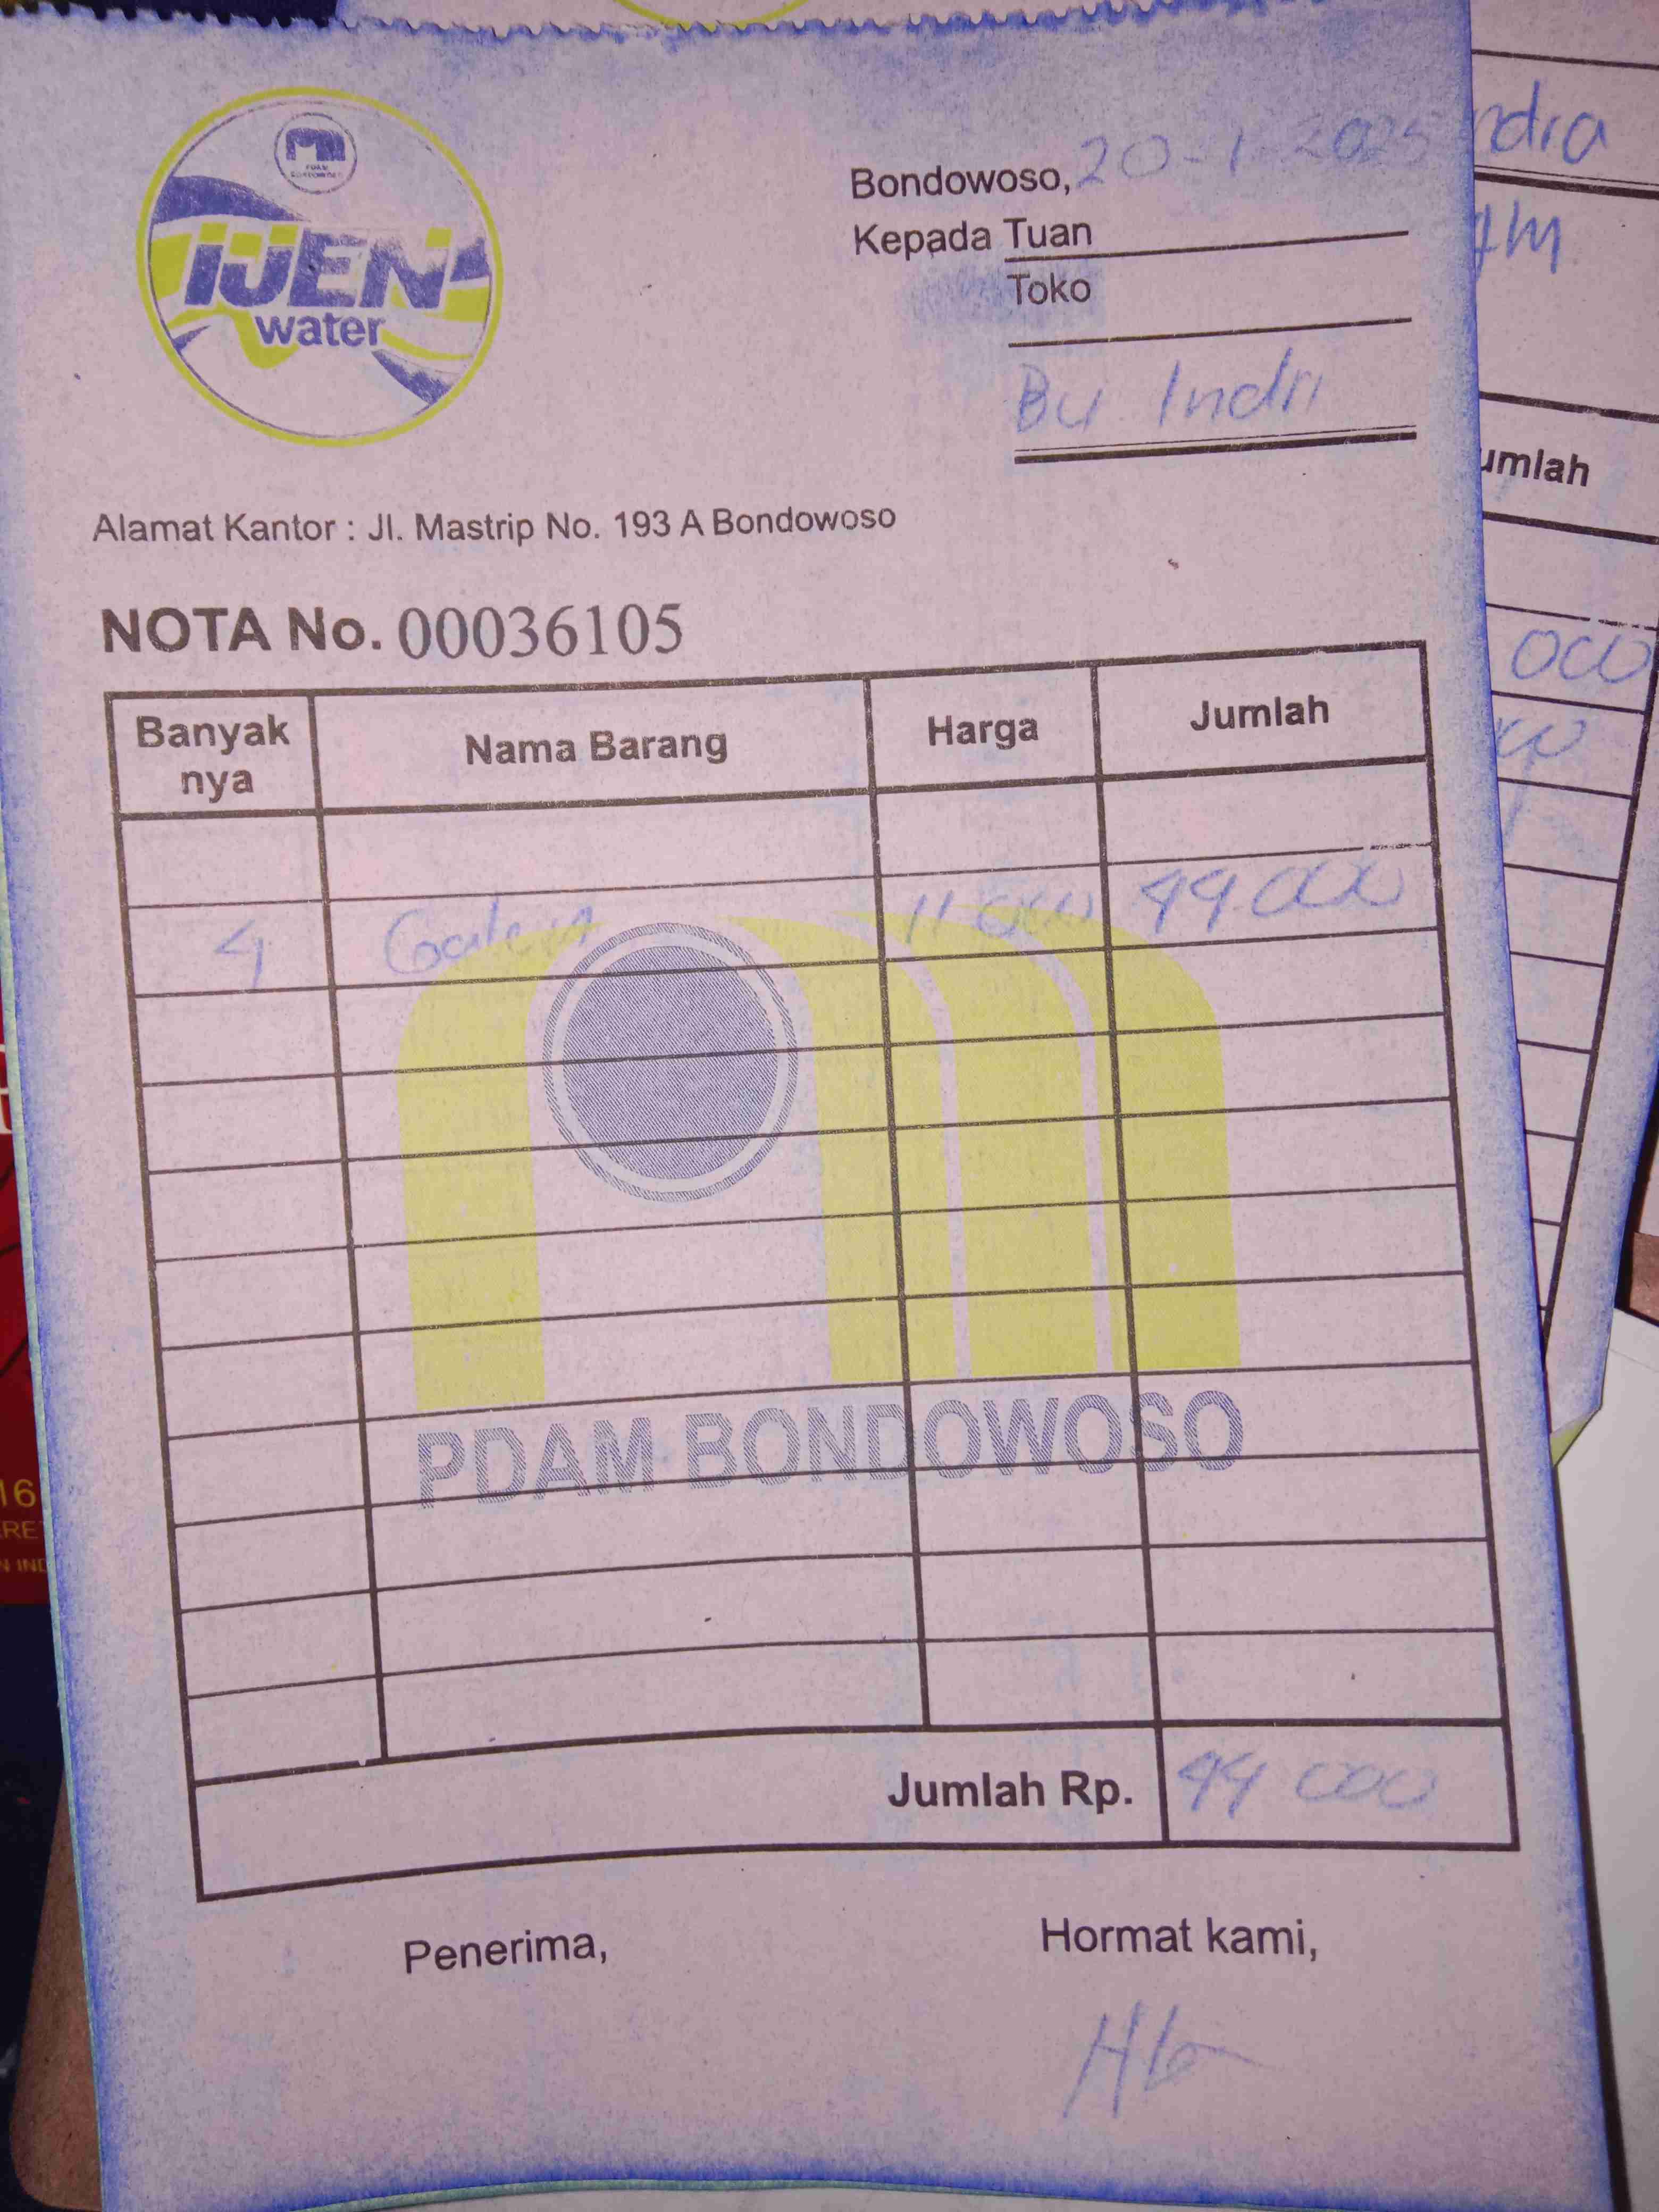 PDAM
BONDOWOSO
IJEN
water
Bondowoso, 20-1-2025
Kepada Tuan
Toko
Bu Indri
Alamat Kantor : Jl. Mastrip No. 193 A Bondowoso
NOTA No. 00036105
Banyak nya Nama Barang Harga Jumlah
4 Galon 11 000 44.000
PDAM BONDOWOSO
Jumlah Rp. 44 000
Penerima, Hormat kami,
ndra
umlah
000
16
RE
N IND